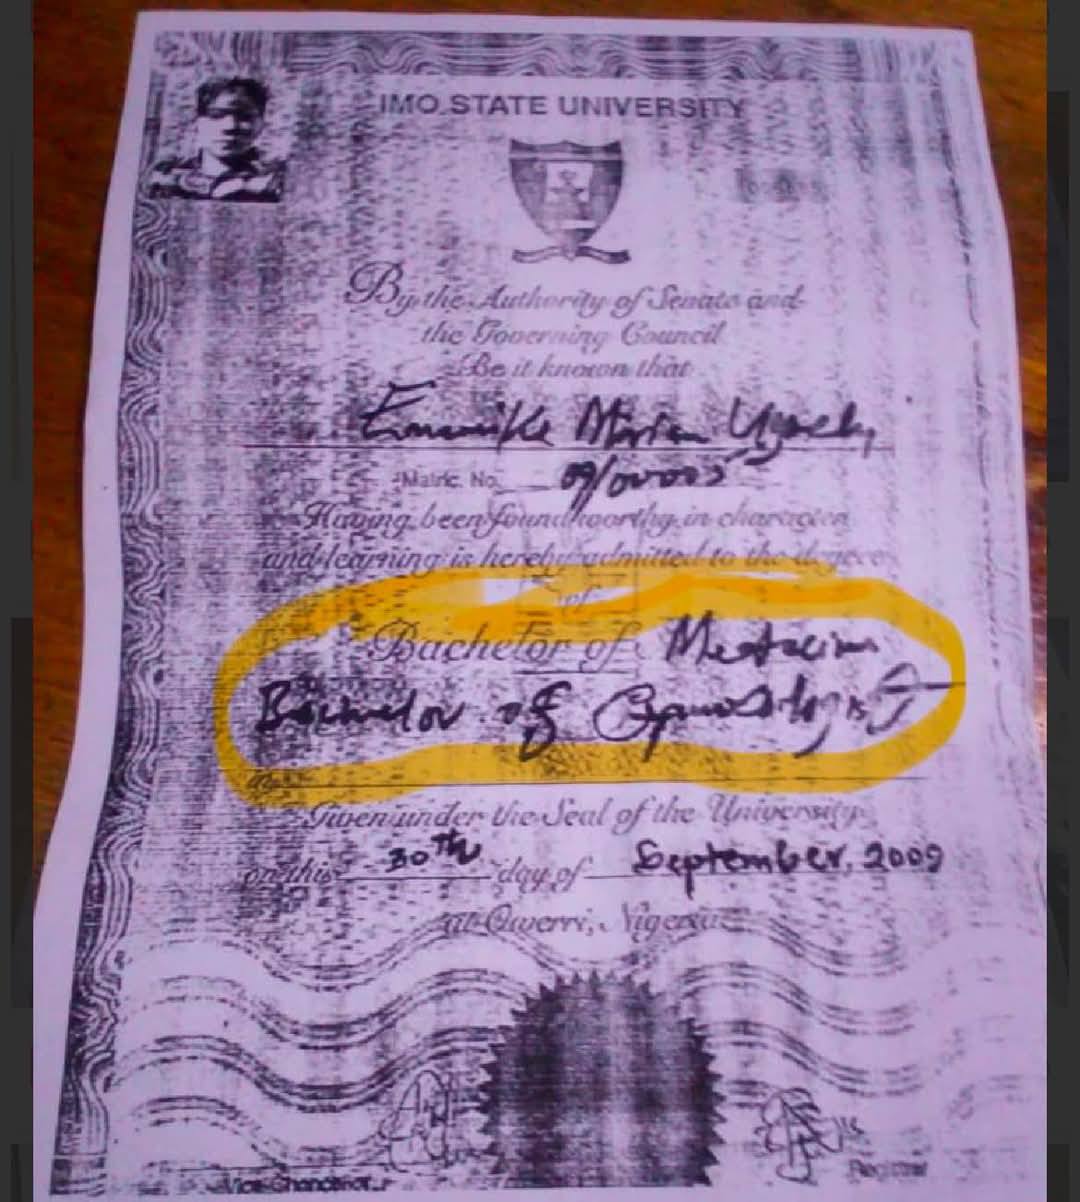 IMO STATE UNIVERSITY
By the Authority of Senate and
the Governing Council
Be it known that
Matric. No.
Having been found worthy in character
and learning is hereby admitted to the degree
of
Bachelor of
Bachelor of
Given under the Seal of the University
on this 30th day of September, 2009
at Owerri, Nigeria
Vice-Chancellor
Registrar